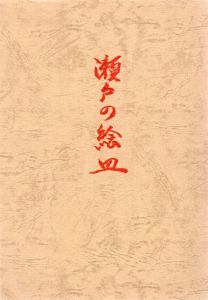 瀬戸の絵皿